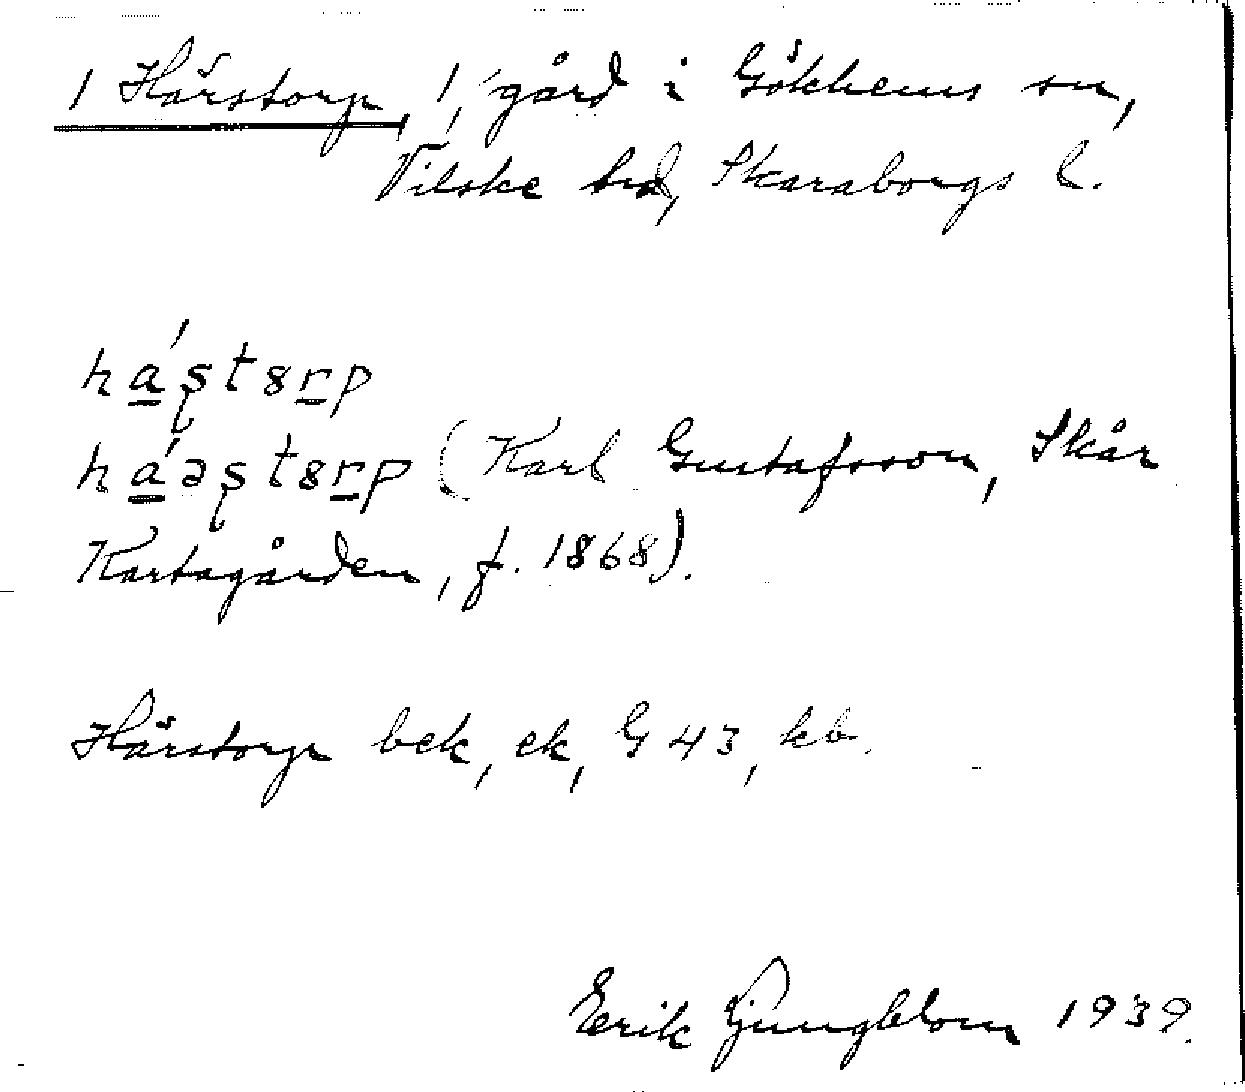 1 Hårstorp, 1, gård i Gökhems sn,
Vilske hd, Skaraborgs l.
há̱ʂtȣṟp
há̱əʂtȣṟp (Karl Gustafsson, Skår
Kartagården, f. 1868).
Hårstorp bek, ek, G 43, kb.
Erik Ljungblom 1939.